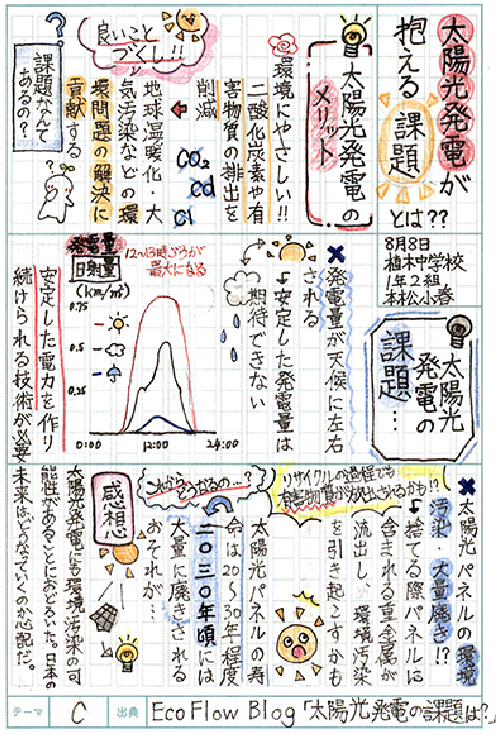 太陽光発電が
抱える課題
とは??
太陽光発電の
メリット
環境にやさしい!!
二酸化炭素や有
害物質の排出を
削減
CO₂
Cd
Cl
良いこと
づくし!!
地球温暖化・大
気汚染などの環
環問題の解決に
貢献する
?
課題なんて
あるの?
?
8月8日
植木中学校
1年2組
本松小春
太陽光
発電の
課題…
×発電量が天候に左右
される
↓安定した発電量は
期待できない
発電量
日射量
(km/㎡)
12~13時ごろが
最大になる
0.75
0.5
0.25
0:00
12:00
24:00
安定した電力を作り
続けられる技術が必要
×太陽光パネルの環境
汚染・大量廃き!?
↓捨てる際パネルに
含まれる重金属が
流出し、環境汚染
を引き起こすかも
リサイクルの過程でも
有害物質が放出されるかも!?
太陽光パネルの寿
命は20~30年程度
二〇三〇年頃には
大量に廃きされる
おそれが…
これから
どうなるの…?
感想
太陽光発電にも環境汚染の可
能性があることにおどろいた。日本の
未来はどうなっていくのか心配だ。
テーマ
C
出典
EcoFlow Blog「太陽光発電の課題は?」